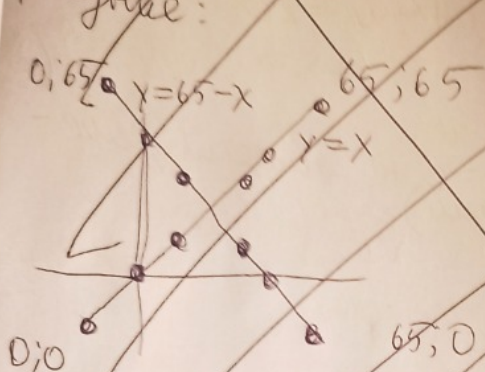 0;65
y=65-x
65;65
y=x
0;0
65;0